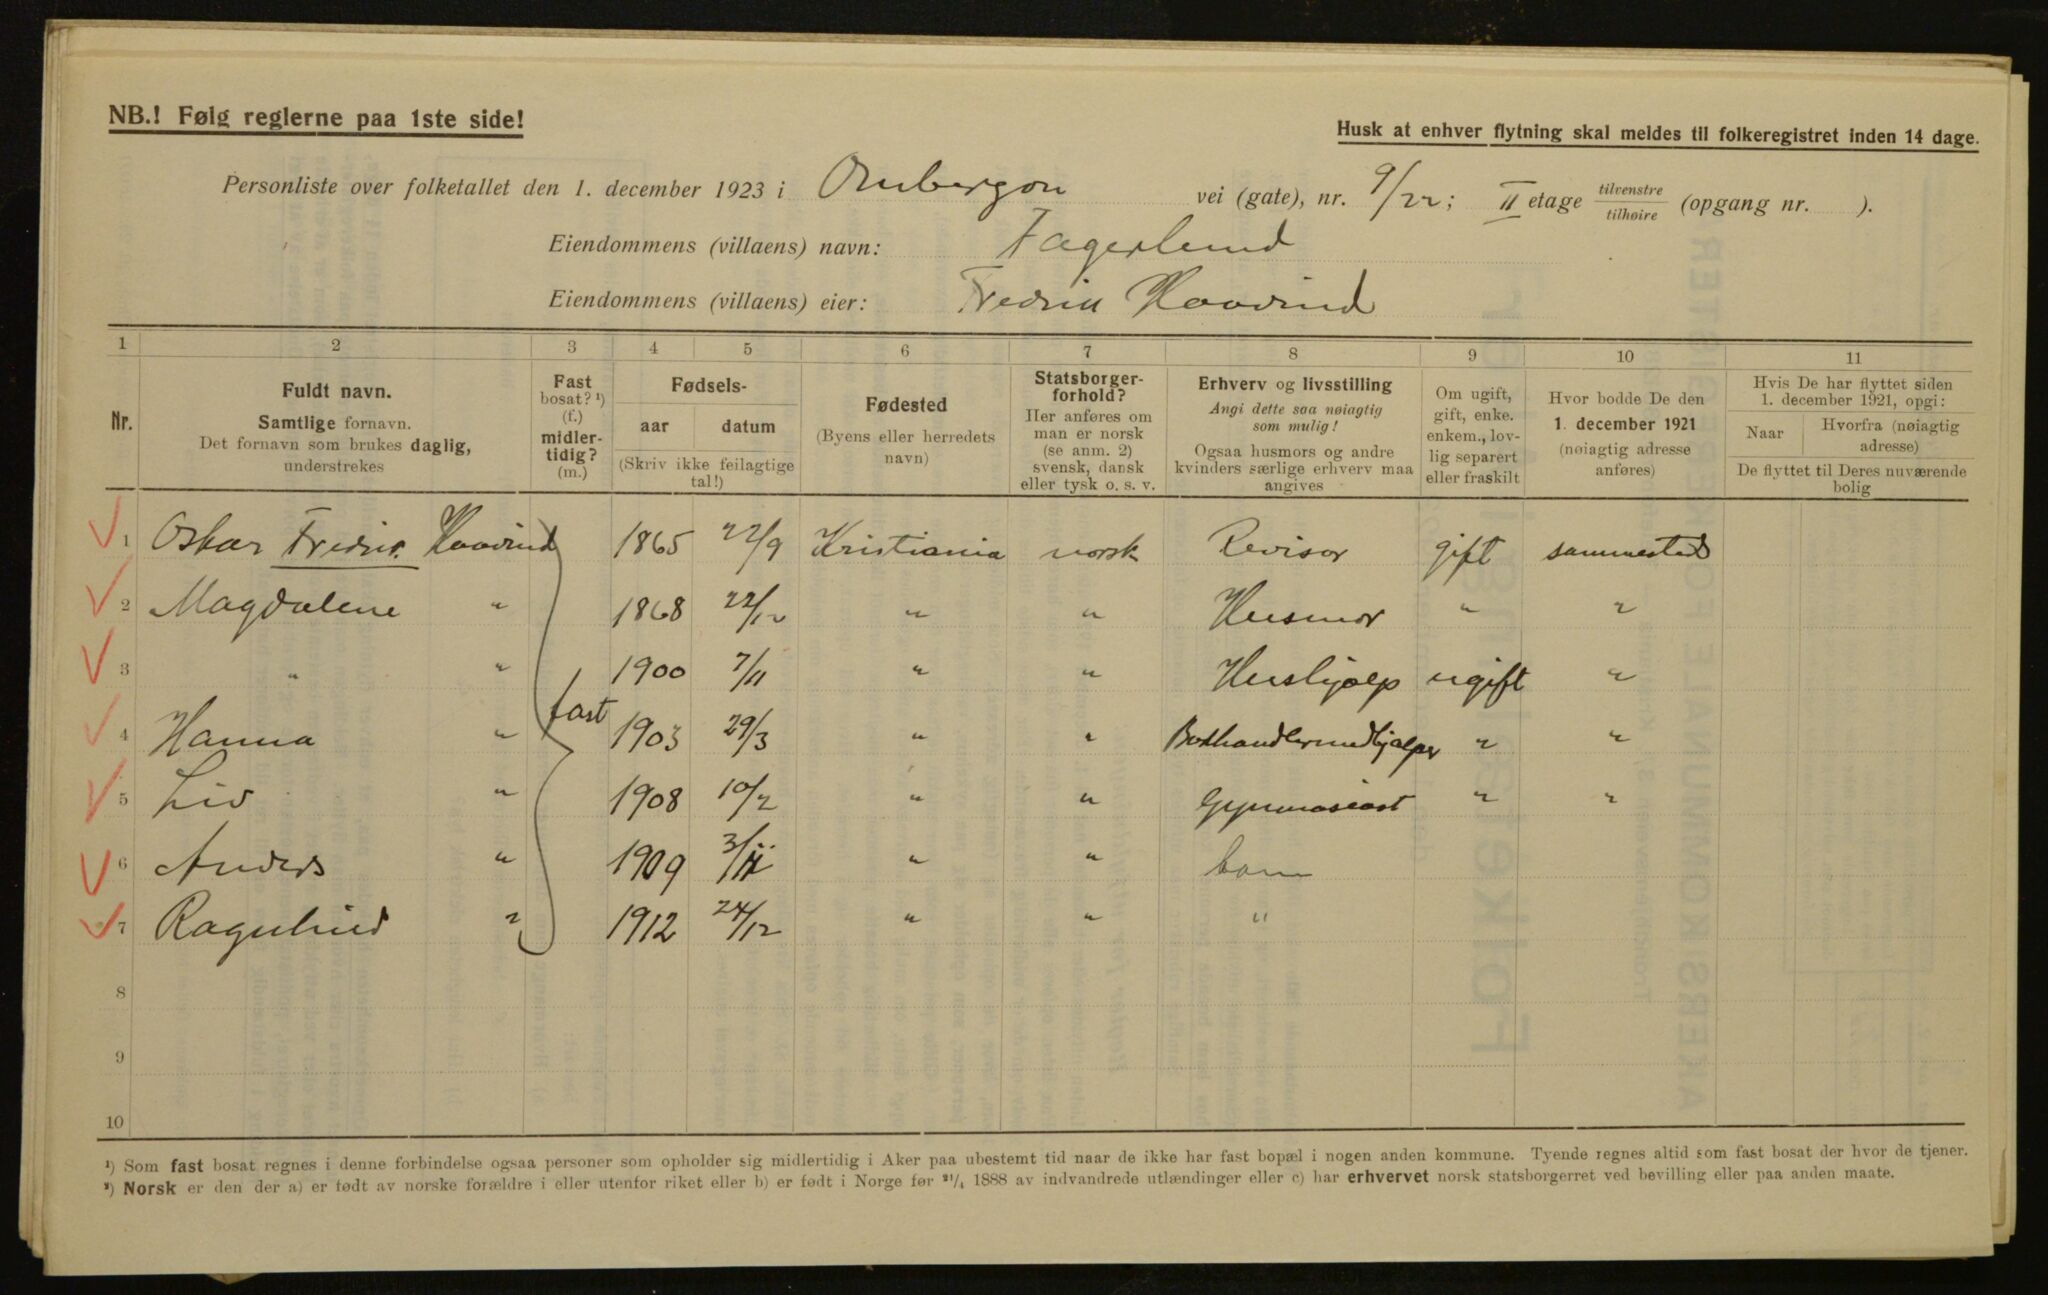 NB.! Følg reglerne paa 1ste side!
Husk at enhver flytning skal meldes til folkeregistret inden 14 dage.
Personliste over folketallet den 1. december 1923 i vei (gate), nr. 9/22; II etage tilvenstre tilhøire (opgang nr. ).
Eiendommens (villaens) navn: Fagerlund
Eiendommens (villaens) eier: Fredrik Haavind
1 2 3 4 5 6 7 8 9 10 11
Nr.
Fuldt navn.
Samtlige fornavn.
Det fornavn som brukes daglig,
understrekes
Fast
bosat? ¹)
(f.)
midler-
tidig?
(m.)
Fødsels-
aar datum
(Skriv ikke feilagtige
tal!)
Fødested
(Byens eller herredets
navn)
Statsborger-
forhold?
Her anføres om
man er norsk
(se anm. 2)
svensk, dansk
eller tysk o. s. v.
Erhverv og livsstilling
Angi dette saa nøiagtig
som mulig!
Ogsaa husmors og andre
kvinders særlige erhverv maa
angives
Om ugift,
gift, enke.
enkem., lov-
lig separert
eller fraskilt
Hvor bodde De den
1. december 1921
(nøiagtig adresse
anføres)
Hvis De har flyttet siden
1. december 1921, opgi:
Naar
Hvorfra (nøiagtig
adresse)
De flyttet til Deres nuværende
bolig
1 Oskar Fredrik Haavind 1865 22/9 Kristiania norsk Revisor gift sammested
2 Magdalene " 1868 22/12 " " Husmor " "
3 " " 1900 7/11 " " Hushjælp ugift "
fast
4 Hanna " 1903 29/3 " " Bokhandlermedhjælper " "
5 Liv " 1908 10/2 " " Gymnasiast " "
6 Anders " 1909 3/11 " " barn
7 Ragnhild " 1912 24/12 " " "
8
9
10
¹) Som fast bosat regnes i denne forbindelse ogsaa personer som opholder sig midlertidig i Aker paa ubestemt tid naar de ikke har fast bopæl i nogen anden kommune. Tyende regnes altid som fast bosat der hvor de tjener.
²) Norsk er den der a) er født av norske forældre i eller utenfor riket eller b) er født i Norge før ²¹/₄ 1888 av indvandrede utlændinger eller c) har erhvervet norsk statsborgerret ved bevilling eller paa anden maate.